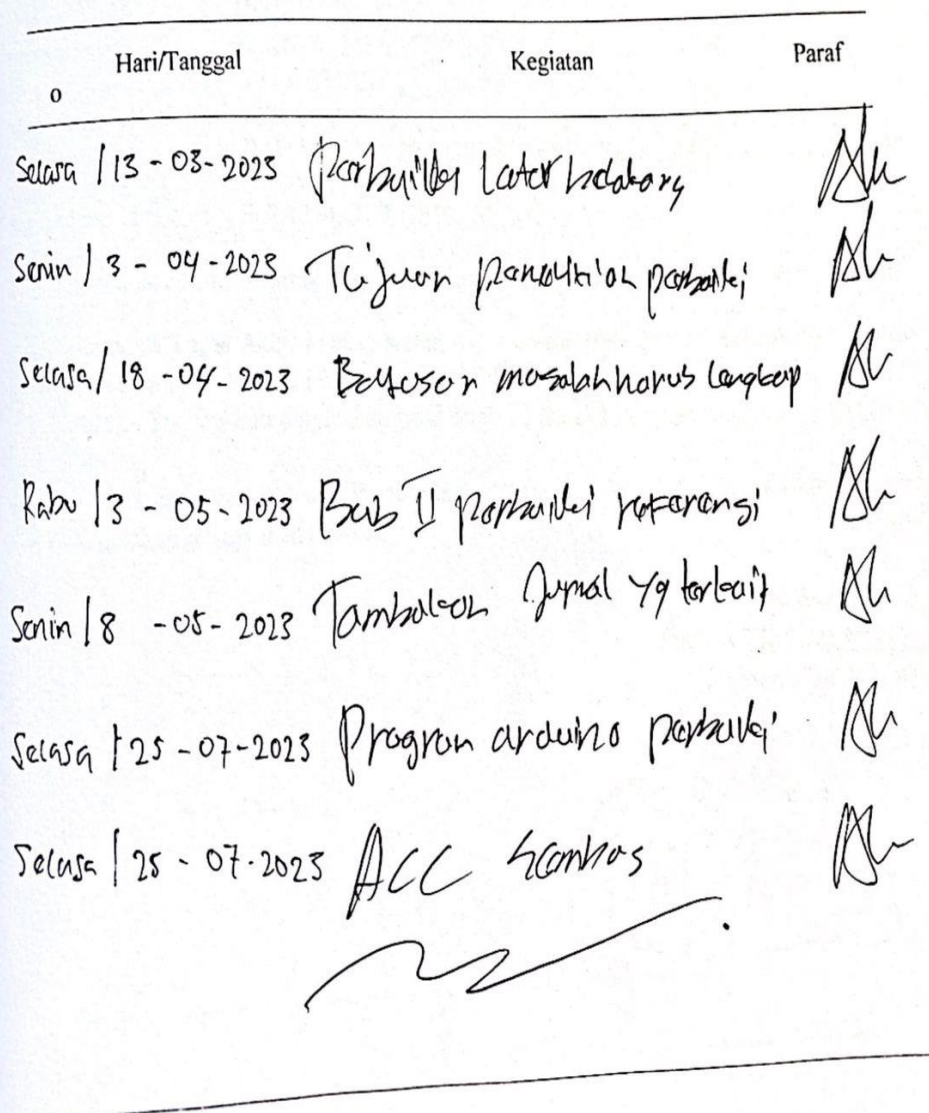 Hari/Tanggal Kegiatan Paraf
o
Selasa / 13 - 03 - 2023 Perbaiki Latar belakang
Senin / 3 - 04 - 2023 Tujuan penelitian perbaiki
Selasa / 18 - 04 - 2023 Batasan masalah harus lengkap
Rabu / 3 - 05 - 2023 Bab II perbaiki referensi
Senin / 8 - 05 - 2023 Tambahkan Jurnal yg terkait
Selasa / 25 - 07 - 2023 Program arduino perbaiki
Selasa / 25 - 07 - 2023 ACC Semhas